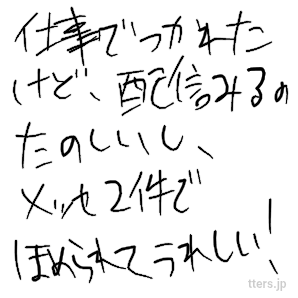 仕事でつかれた
けど、配信みるの
たのしいし、
メッセ2件で
ほめられてうれしい!
tters.jp